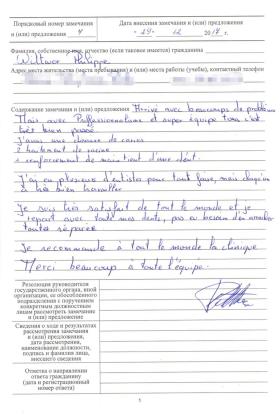 Порядковый номер замечания
и (или) предложения 7
Дата внесения замечания и (или) предложения
« 29 » 12 2017 г.
Фамилия, собственное имя, отчество (если таковое имеется) гражданина
Philippe
Адрес места жительства (места пребывания) и (или) места работы (учебы), контактный телефон
Содержание замечания и (или) предложения Arrivé avec beaucoups de problème
Mais avec Proffessionalisme et super équipe tous c'est
très bien passé.
J'avais une dizaine de caries
traitement de racine
1 renforcement de maintient d'une dent.
J'ai eu plusieurs dentistes pour tout faire, mais chaqu'un
a très bien travailler
Je suis très satisfait de tout le monde et je
repart avec toute mes dents, pas eu besoin d'en arracher
toutes réparer
Je recommande à tout le monde la clinique
Merci beaucoup à toute l'équipe.
Резолюция руководителя
государственного органа, иной
организации, ее обособленного
подразделения с поручением
конкретным должностным
лицам рассмотреть замечание
и (или) предложение
Сведения о ходе и результатах
рассмотрения замечания
и (или) предложения,
дата рассмотрения,
наименование должности,
подпись и фамилия лица,
внесшего сведения
Отметка о направлении
ответа гражданину
(дата и регистрационный
номер ответа)
5